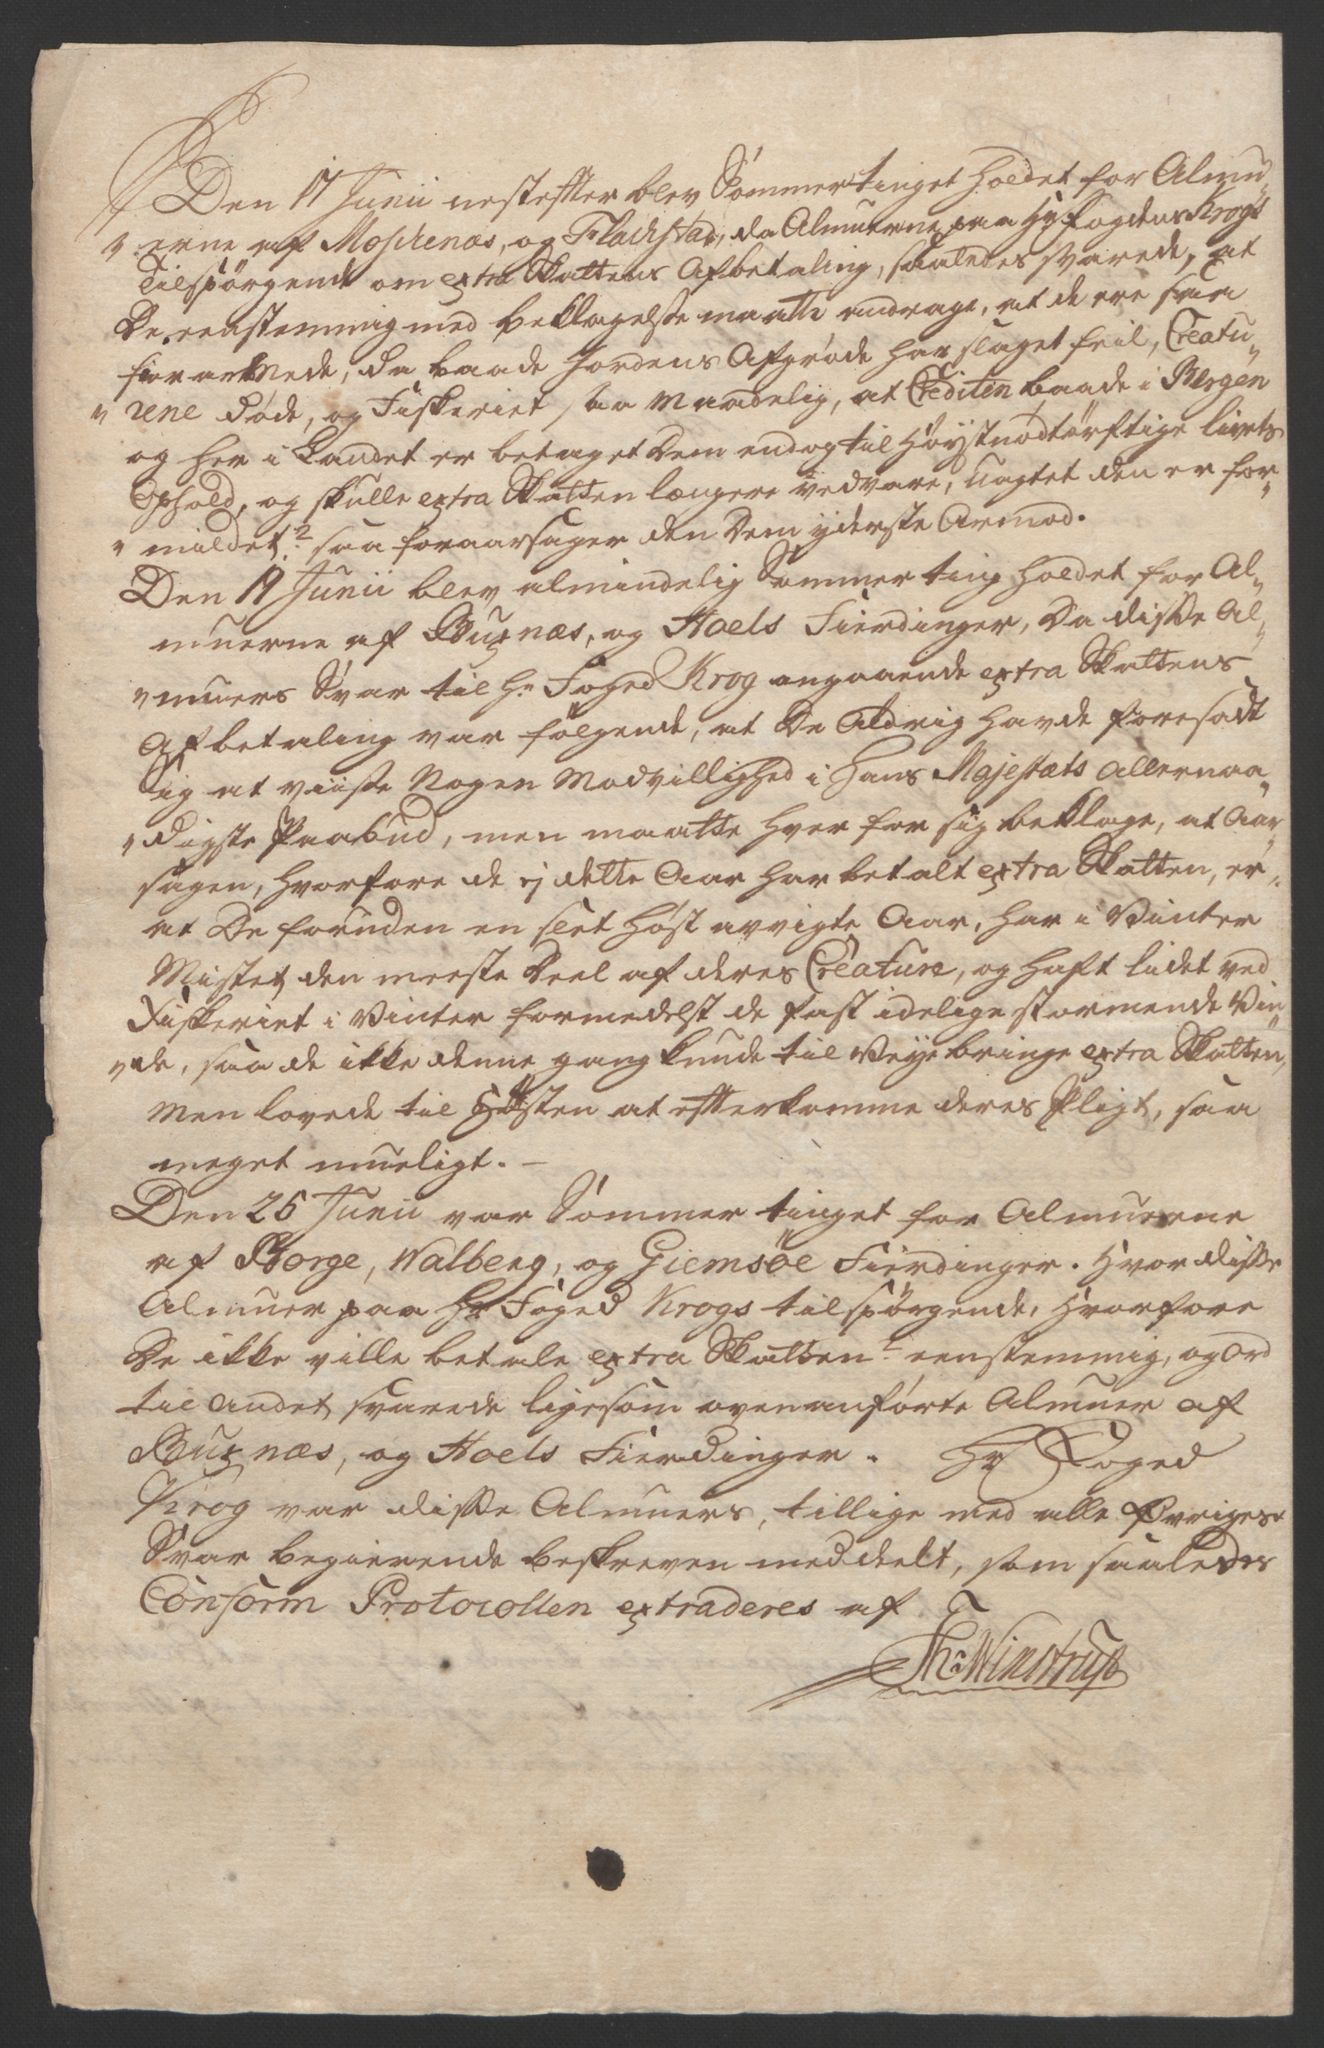 Den 17 Junii nestefter blev Sømmertinget holdet for Almu-
erne af Moschenæs, og Flachstad, da Almuerne paa Hr Fogdens Krogs
Tilspørgende om extra Skattens Afbetaling, saaledes svarede, at
De eenstemmig med beklagelse maatte andrage, at de ere saa
forarmede, da baade Jordens Afgrøde har slaget feil, Creatu-
rene døde, og Fiskeriet saa Maadelig, at Crediten baade i Bergen
og her i Landet er betaget dem endog til høystnødtørftige livets
Ophold, og skulle extra Skatten længere vedvare, uagtet den er for-
mildet saa foraarsager den dem yderste Armod.
Den 19 Junii blev almindelig Sommer ting holdet for Al-
muerne af Buxnæs, og Hoels Fierdinger, da disse Al-
muers Svar til Hr Foged Krog angaaende extra Skattens
Afbetaling var følgende, at De Aldrig havde foresadt
sig at viise Nogen Modvillighed i Hans Majestæts Allernaa-
digste Paabud, men maatte hver for sig beklage, at Aar-
sagen, hvorfore de ej dette Aar har betalt extra Skatten, er
at De foruden en slet Høst avvigte Aar, har i Vinter
Mistet den meeste Deel af deres Creature, og haft lidet ved
Fiskeriet i Vinter formedelst de fast idelige stormende Vin-
de, saa de ikke denne gang kunde til Veye bringe extra Skatten,
Men lovede til Høsten at efterkomme deres Pligt, saa
meget mueligt. -
Den 25 Junii var Sømmer tinget for Almuerne
af Borge, Walberg, og Giemsøe Fierdinger. Hvor disse
Almuer paa Hr Foged Krogs tilspørgende, Hvorfore
De ikke ville betale extra Skatten eenstemmig, og Ord
til andet svarede ligesom ovenanførte Almuer af
Buxnæs, og Hoels Fierdinger. Hr Foged
Krog var disse Almuers, tillige med alle Øvriges
Svar begierende beskreven meddeelt, som saaledes
Conform Protocollen extraderes af
Th: Winstrup